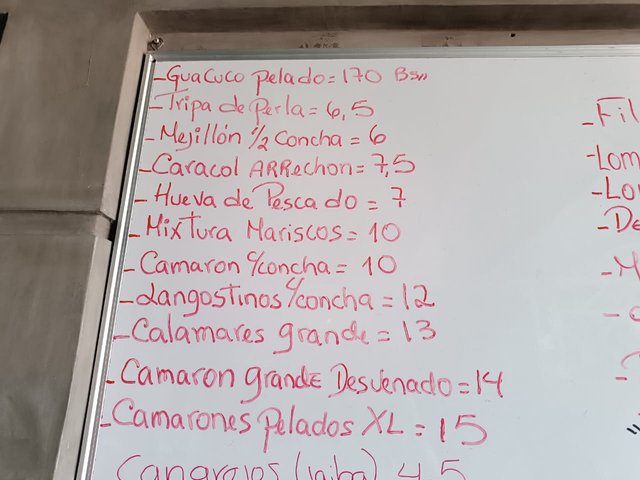 -Guacuco pelado=170 Bs
-Tripa de Perla=6,5
-Mejillón 1/2 Concha=6
-Caracol ARRechon=7,5
-Hueva de Pescado=7
-Mixtura Mariscos=10
-Camaron c/concha=10
-Langostinos c/concha=12
-Calamares grande=13
-Camaron grande Desvenado=14
-Camarones Pelados XL=15
Cangrejos (jaiba) 4,5
-Fil
-Lom
-Lo
-De
-M